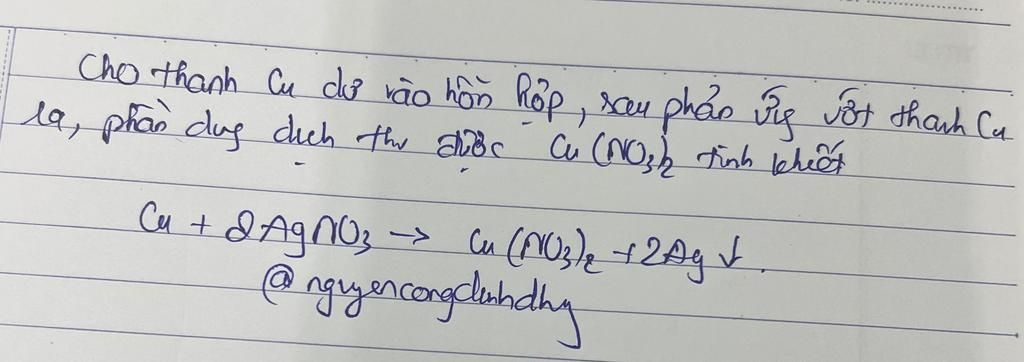 Cho thanh Cu dư vào hỗn hợp, sau phản ứng vớt thanh Cu
ra, phần dung dịch thu được Cu(NO3)2 tinh khiết
Cu + 2AgNO3 → Cu(NO3)2 + 2Ag↓.
@nguyencongdinhdhy